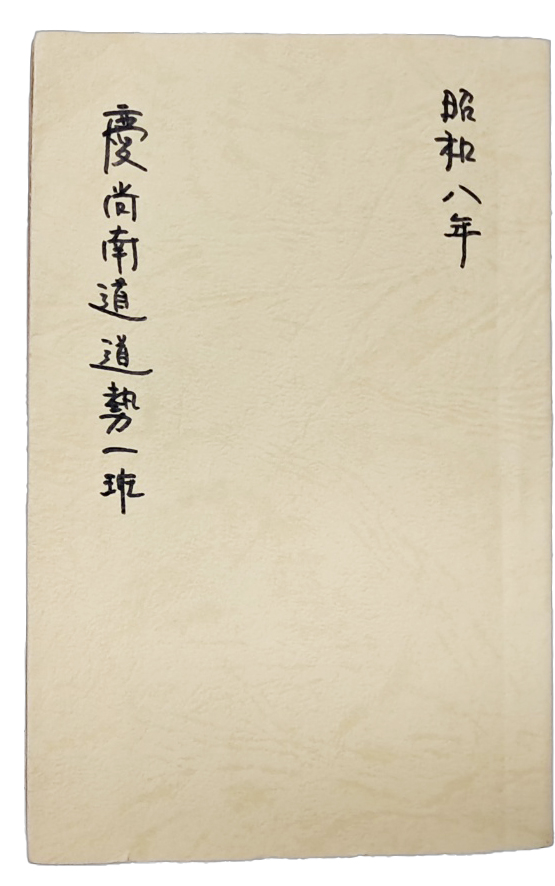 昭和八年
慶尚南道道勢一班